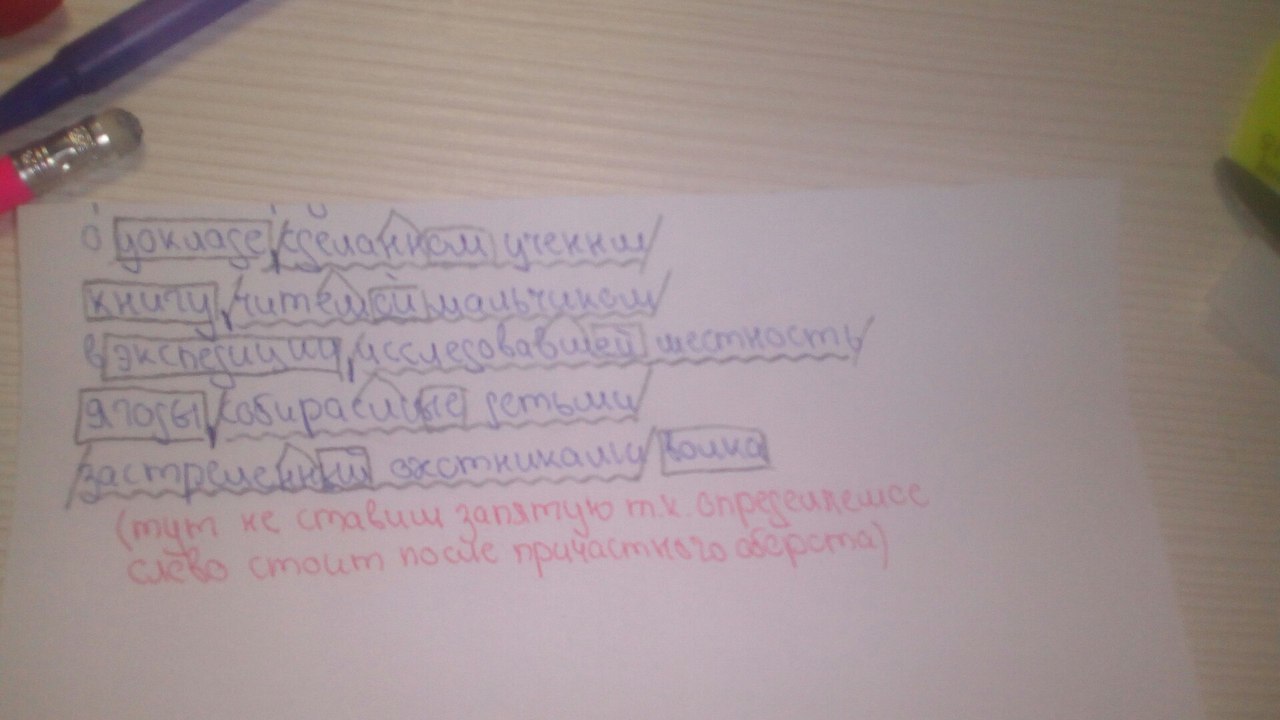 о докладе, сделанном ученым
книгу, читаемой мальчиком
в экспедиции, исследовавшей местность
ягоды, собираемые детьми
застреленный охотниками волка
(тут не ставиш запятую т.к. определяемое
слово стоит после причастного оборота)